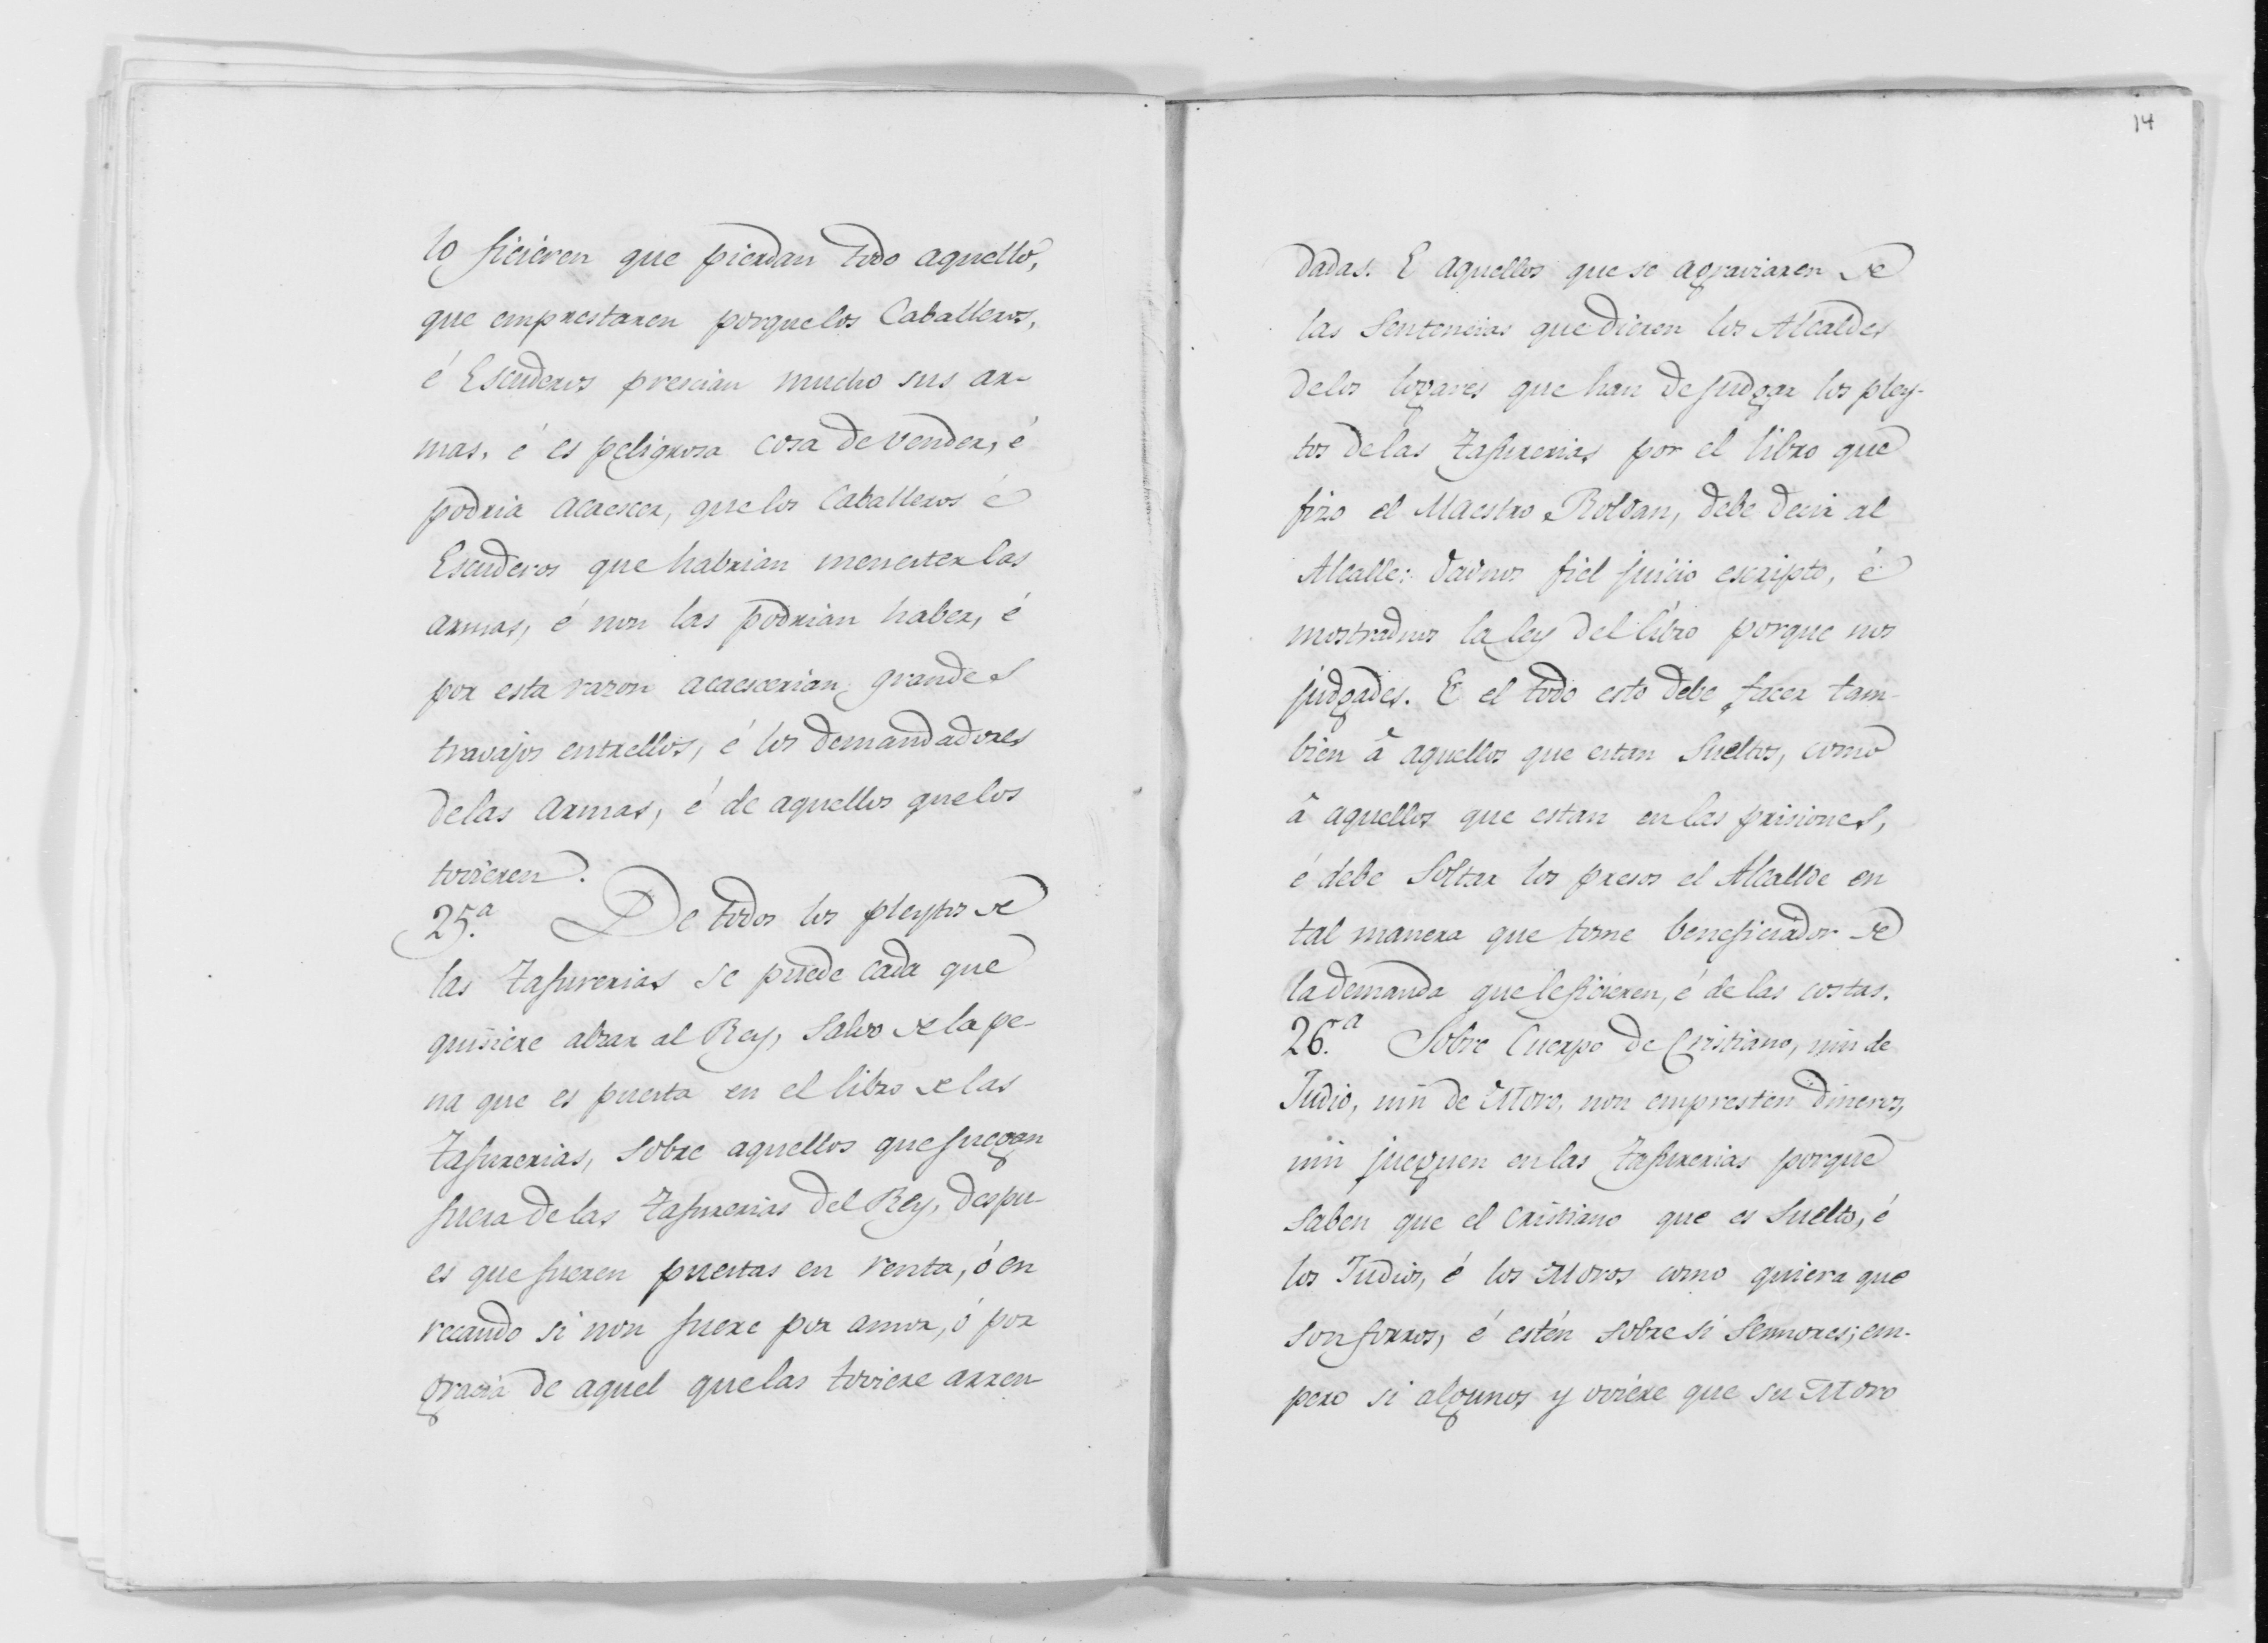 lo ficieren que pierdan todo aquello,
que emprestaren porque los Caballeros,
é Escuderos prescian mucho sus ar-
mas, é es peligrosa cosa de vender, é
podria acaescer, que los Caballeros é
Escuderos que habrian menester las
armas, é non las podrian haber, é
por esta razon acaescerian grandes
travajos entrellos, é los demandadores
de las armas, é de aquellos que los
tovieren.
25.ª De todos los pleytos de
las Tafurerias se puede cada que
quisiere alzar al Rey, salvo de la pe-
na que es puesta en el libro de las
Tafurerias, sobre aquellos que juegan
fuera de las Tafurerias del Rey, despu-
es que fueren puestas en renta, ó en
recaudo si non fuere por amor, ó por
gracia de aquel que las toviere arren-
14
dadas. E aquellos que se agraviaren de
las Sentencias que dieren los Alcaldes
de los logares que han de judgar los pley-
tos de las Tafurerias por el libro que
fizo el Maestro Roldan, debe decir al
Alcalle: dadnos fiel juicio escripto, é
mostradnos la ley del libro porque nos
judgades. E el todo esto debe facer tam-
bien â aquellos que estan Sueltos, como
â aquellos que estan en las prisiones,
é debe Soltar los presos el Alcallde en
tal manera que tome beneficiador de
la demanda que le ficieren, é de las costas.
26.ª Sobre Cuerpo de Cristiano, nin de
Judio, nin de Moro, non empresten dineros,
nin jueguen en las Tafurerias porque
saben que el Cristiano que es Suelto, é
los Judios, é los Moros como quiera que
son forros, é estén sobre si Sennores; em-
pero si algunos y oviére que su Moro